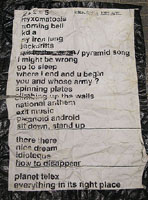 myxomatosis
morning bell
kid a
my iron lung
backdrifts
/ pyramid song
I might be wrong
go to sleep
where I end and u begin
you and whose army ?
spinning plates
climbing up the walls
national anthem
exit music
paranoid android
sit down, stand up
there there
nice dream
idioteque
how to disappear
planet telex
everything in its right place